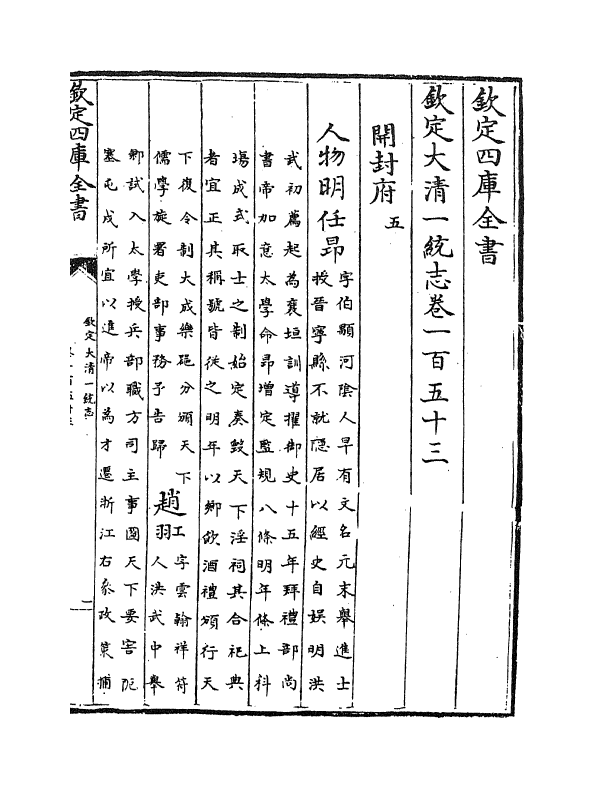 欽定四庫全書
欽定大清一統志卷一百五十三
開封府五
人物明任昂字伯顒河陰人早有文名元末舉進士
授晉寧縣不就隱居以經史自娛明洪
武初薦起為襄垣訓導擢御史十五年拜禮部尚
書帝加意太學命昂增定監規八條明年條上科
場成式取士之制始定奏毀天下淫祠其合祀典
者宜正其稱號皆從之明年以鄉飲酒禮頒行天
下復令制大成樂器分頒天下
儒學旋署吏部事務予告歸
趙羾字雲翰祥符
人洪武中舉
鄉試入太學授兵部職方司主事圖天下要害阨
塞屯戍所宜以進帝以為才遷浙江右參政策捕
欽定四庫全書
欽定大清一統志
卷一百五十三